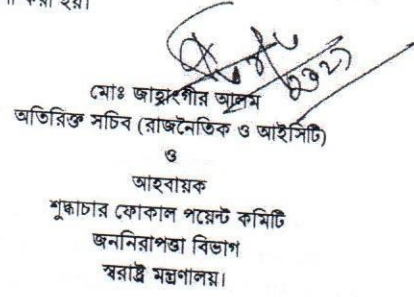 করা হয়।
মোঃ জাহাংগীর আলম
অতিরিক্ত সচিব (রাজনৈতিক ও আইসিটি)
ও
আহবায়ক
শুদ্ধাচার ফোকাল পয়েন্ট কমিটি
জননিরাপত্তা বিভাগ
স্বরাষ্ট্র মন্ত্রণালয়।